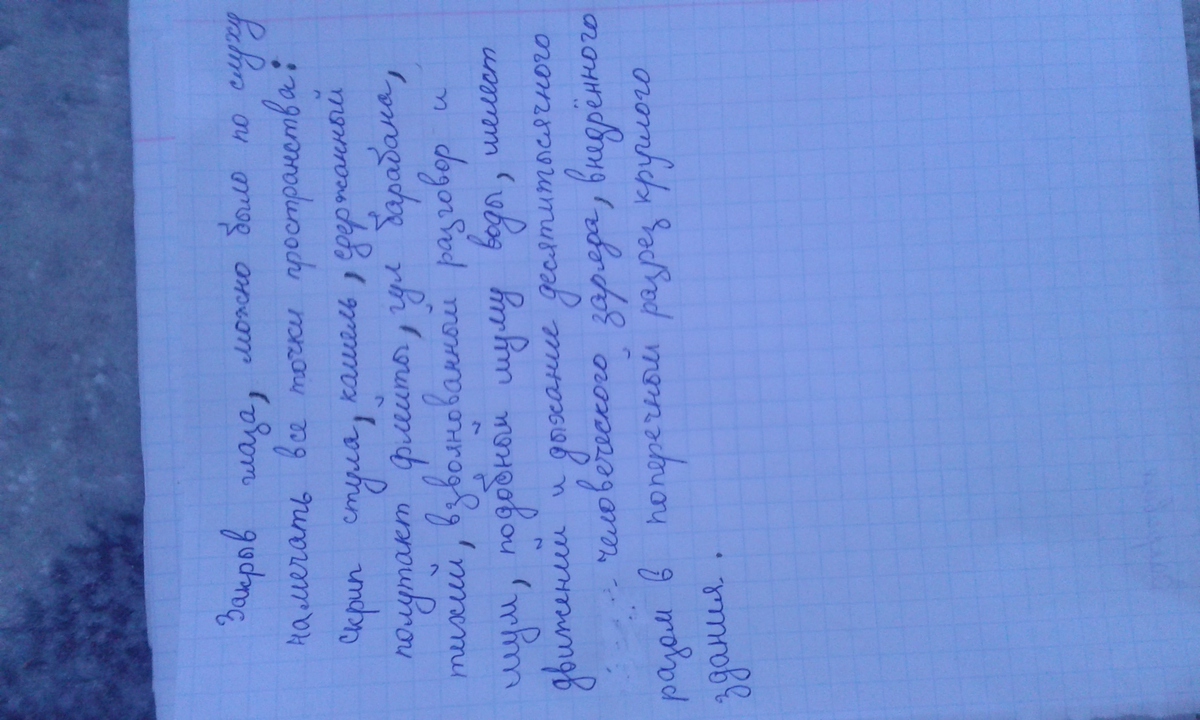 Закрыв глаза, можно было по слуху
намечать все точки пространства:
Скрип стула, кашель, сдержанный
полутакт флейты, гул барабана,
тихий, взволнованный разговор и
шум, подобный шуму воды, шелест
движений и дыхание десятитысячного
человеческого заряда, внедрённого
разом в поперечный разрез круглого
здания.